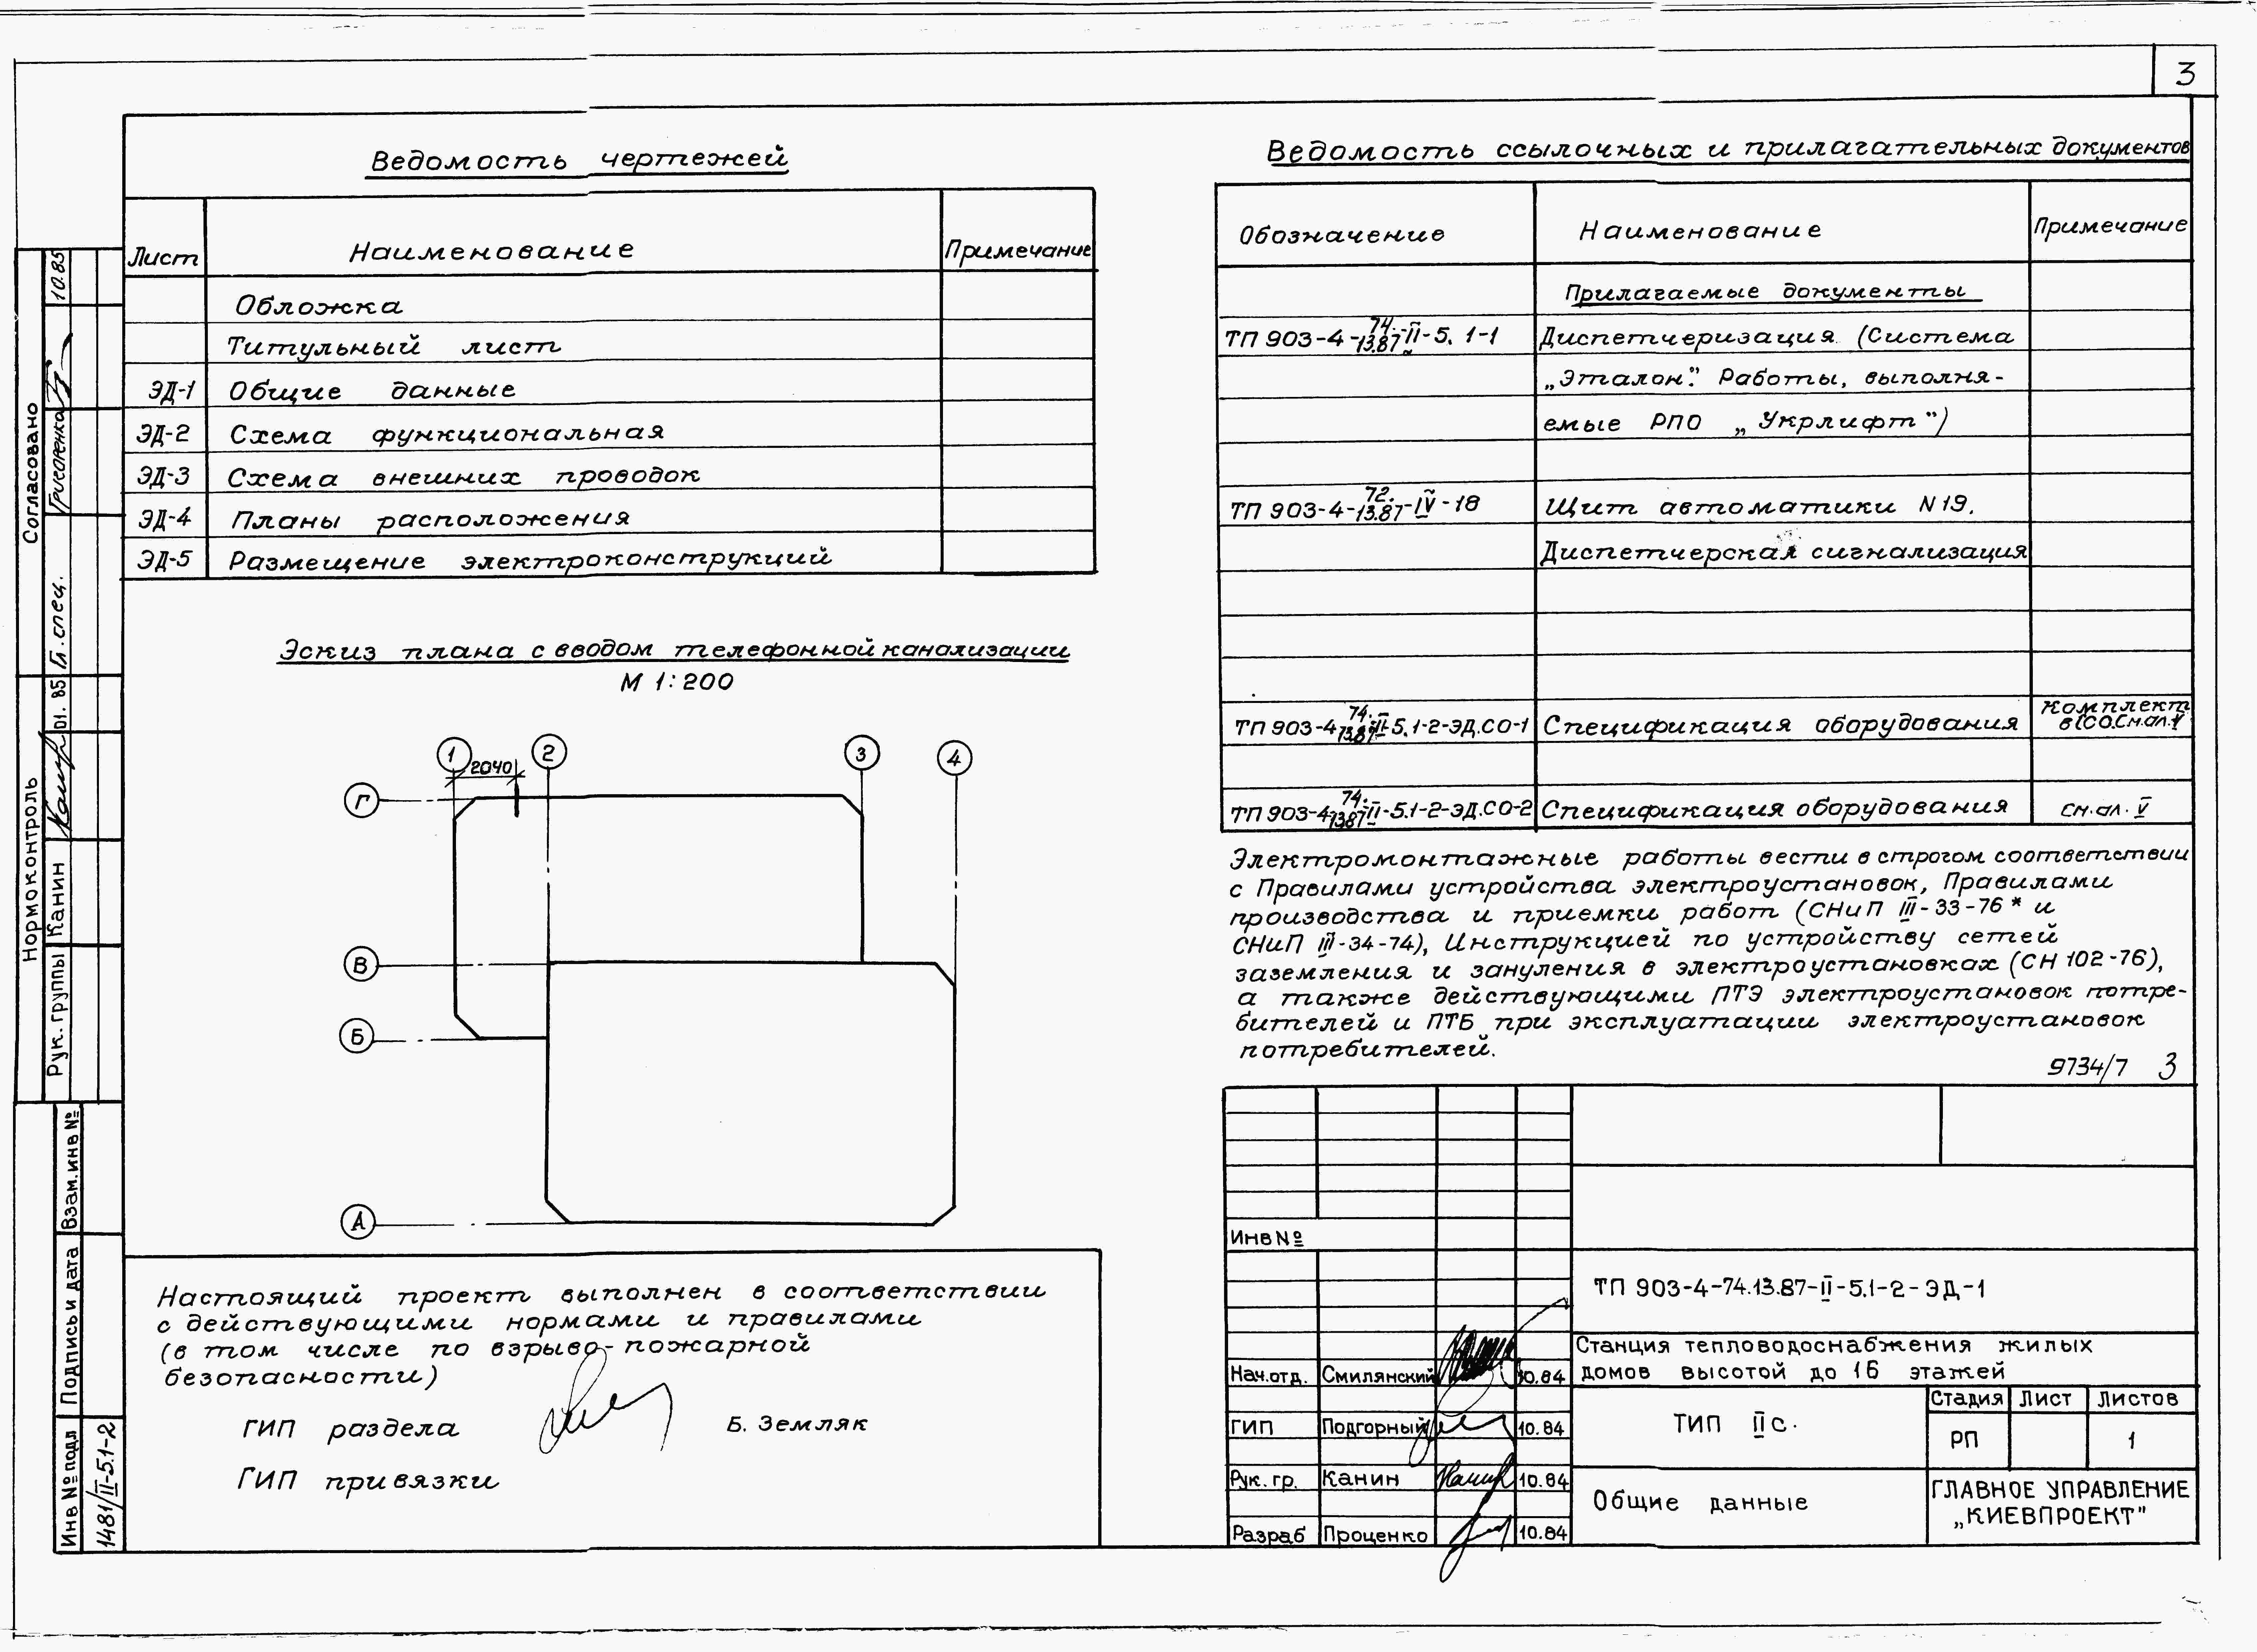 3
Ведомость чертежей
Лист Наименование Примечание
Обложка
Титульный лист
ЭД-1 Общие данные
ЭД-2 Схема функциональная
ЭД-3 Схема внешних проводок
ЭД-4 Планы расположения
ЭД-5 Размещение электроконструкций
Эскиз плана с вводом телефонной канализации
М 1:200
1 2 3 4
2040
Г
В
Б
А
Настоящий проект выполнен в соответствии
с действующими нормами и правилами
(в том числе по взрыво-пожарной
безопасности)
ГИП раздела Б. Земляк
ГИП привязки
Ведомость ссылочных и прилагательных документов
Обозначение Наименование Примечание
Прилагаемые документы
ТП 903-4-74.13.87-II-5.1-1 Диспетчеризация (Система
„Эталон". Работы, выполня-
емые РПО „Укрлифт")
ТП 903-4-72.13.87-IV-18 Щит автоматики N19.
Диспетчерская сигнализация
ТП 903-4-74.13.87-II-5.1-2-ЭД.СО-1 Спецификация оборудования Комплект
в ССО.См.ал.V
ТП 903-4-74.13.87-II-5.1-2-ЭД.СО-2 Спецификация оборудования см.ал. V
Электромонтажные работы вести в строгом соответствии
с Правилами устройства электроустановок, Правилами
производства и приемки работ (СНиП III-33-76* и
СНиП III-34-74), Инструкцией по устройству сетей
заземления и зануления в электроустановках (СН 102-76),
а также действующими ПТЭ электроустановок потре-
бителей и ПТБ при эксплуатации электроустановок
потребителей.
9734/7 3
Инв №
ТП 903-4-74.13.87-II-5.1-2-ЭД-1
Станция тепловодоснабжения жилых
домов высотой до 16 этажей
Нач.отд. Смилянский 10.84
ГИП Подгорный 10.84
Рук. гр. Канин 10.84
Разраб Проценко 10.84
ТИП IIс.
Стадия Лист Листов
РП 1
Общие данные
ГЛАВНОЕ УПРАВЛЕНИЕ
„КИЕВПРОЕКТ"
Согласовано
Гл. спец. 10.85
Нормоконтроль
Рук. группы Канин 01.85
Взам.инв №
Подпись и дата
Инв № подл
1481/II-5.1-2